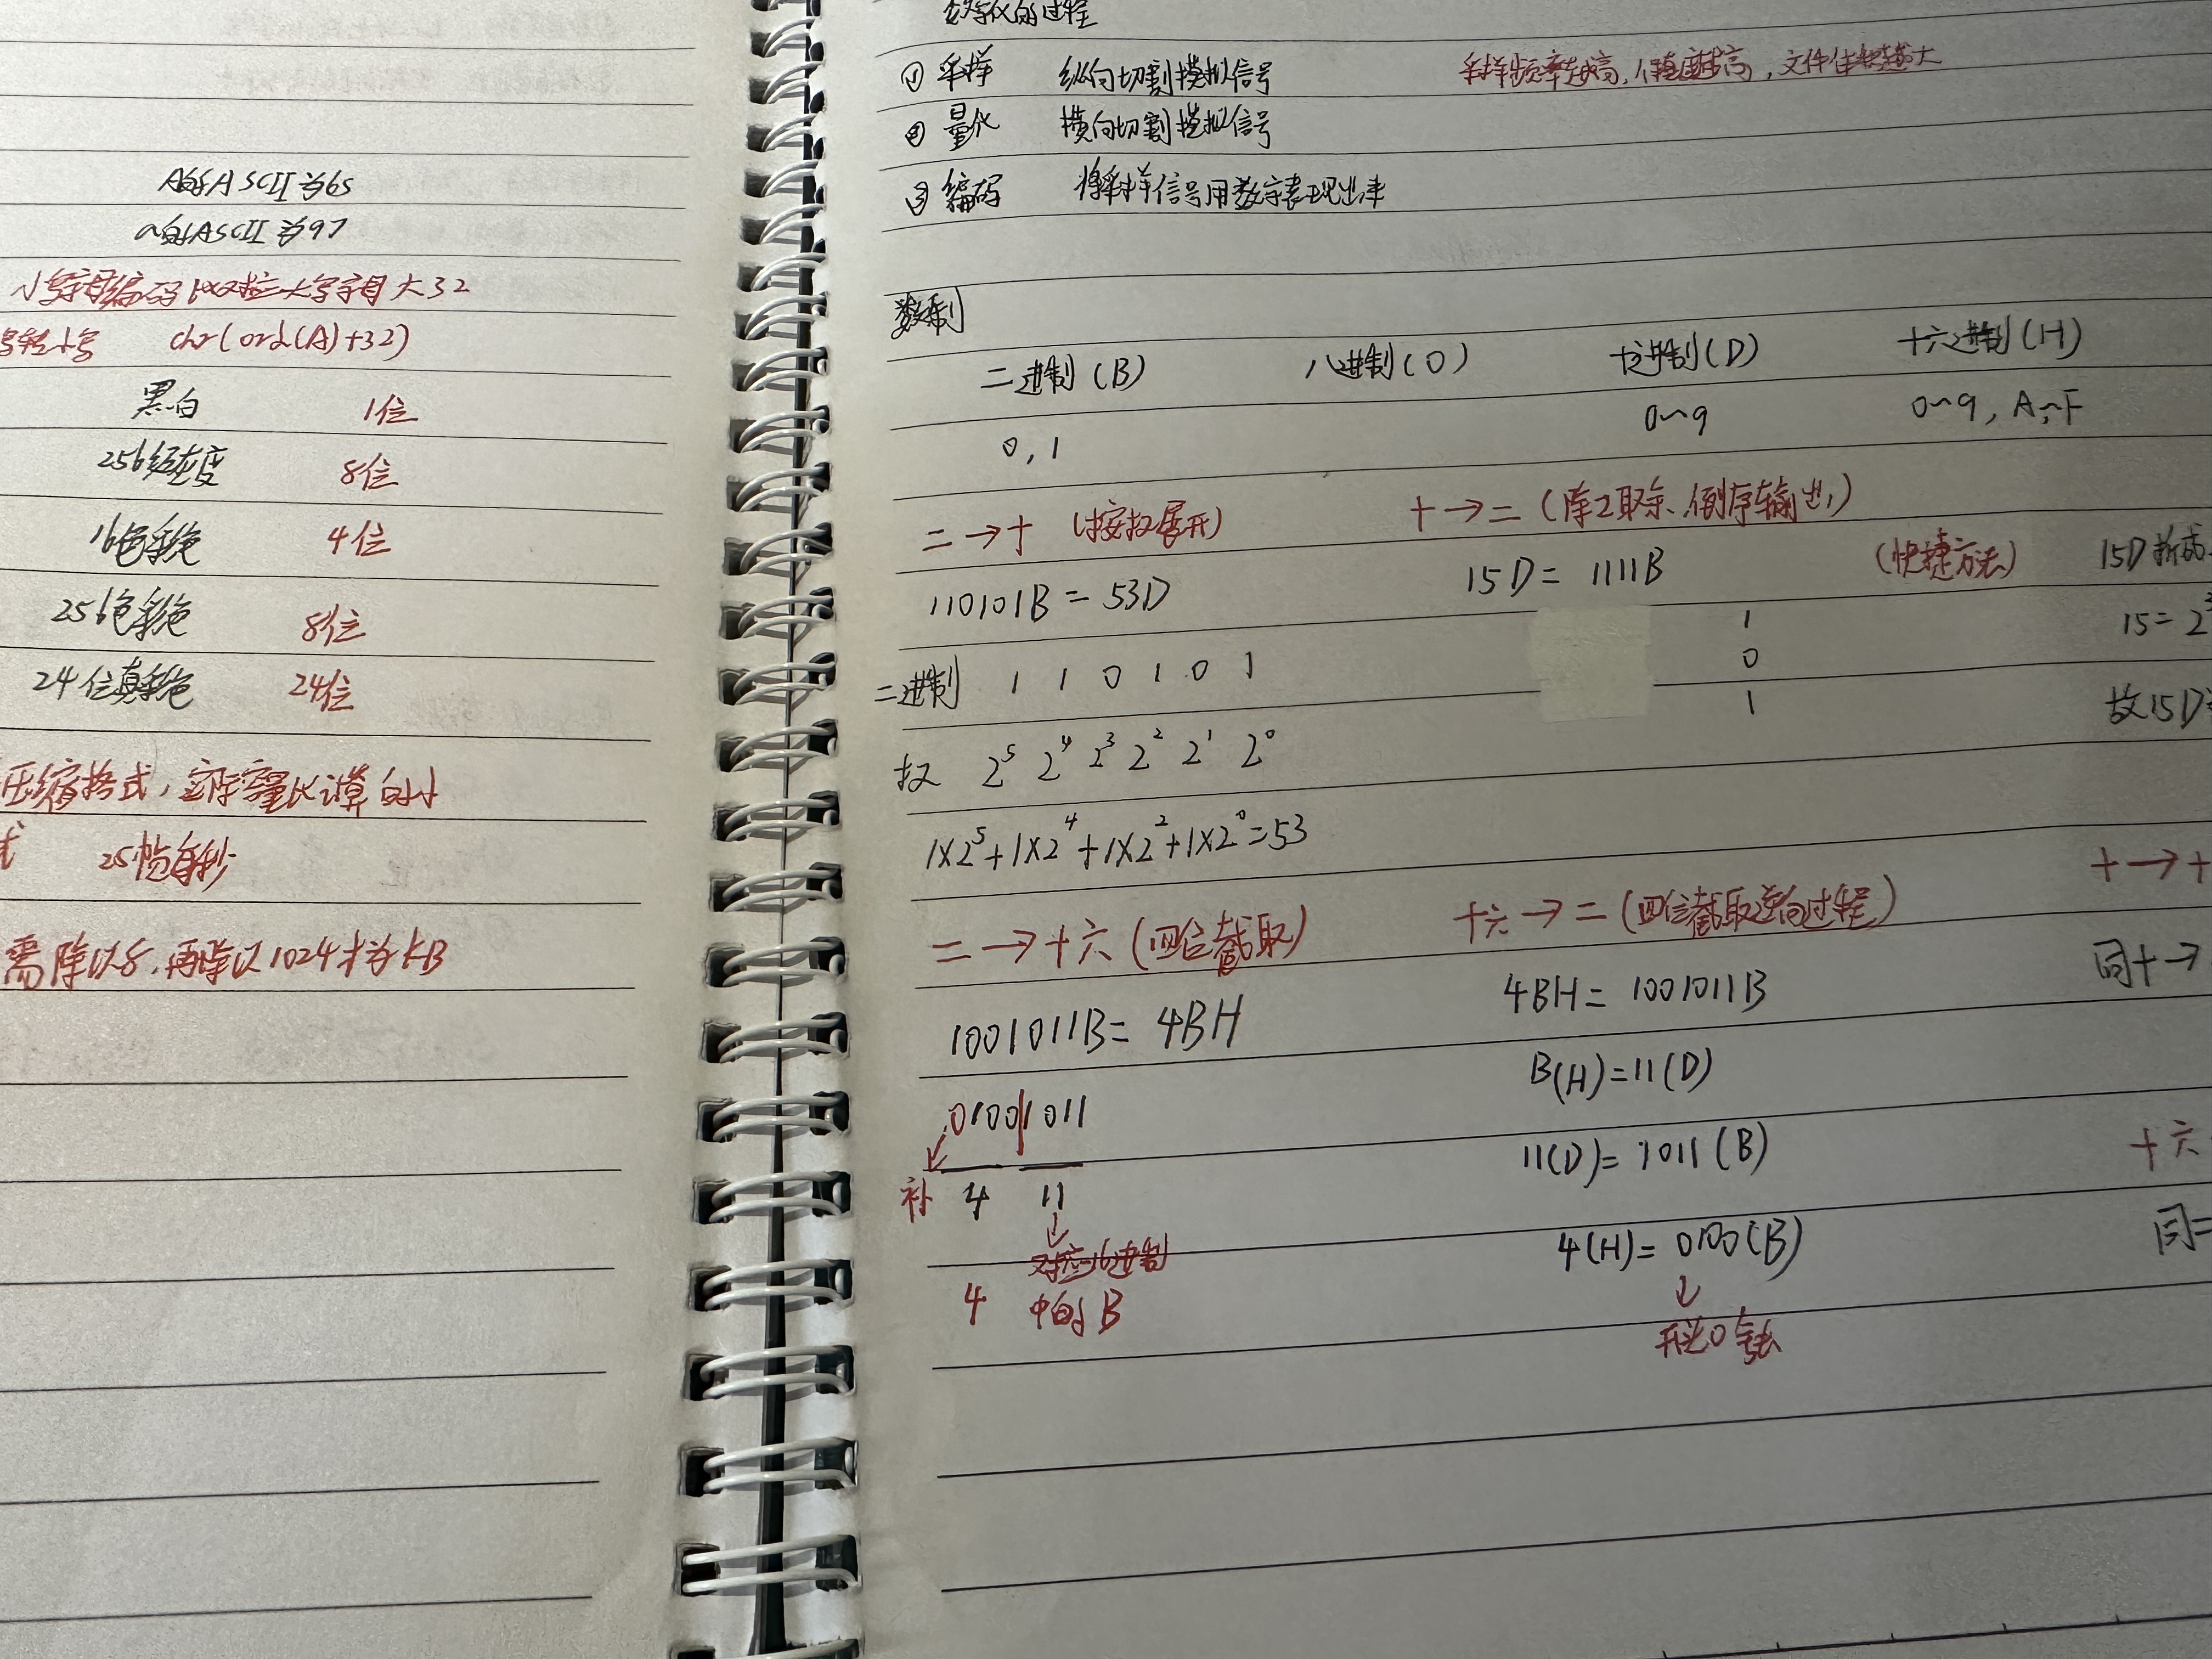 A的ASCII为65
a的ASCII为97
小写字母编码比对应大写字母大32
写转小写 chr(ord(A)+32)
黑白 1位
256级灰度 8位
16色彩色 4位
256色彩色 8位
24位真彩色 24位
压缩格式,实际容量比计算的小
式 25帧每秒
需除以8,再除以1024才为KB
数字化的过程
① 采样 纵向切割模拟信号 采样频率越高,保真度越高,文件体积越大
② 量化 横向切割模拟信号
③ 编码 将采样信号用数字表现出来
数制
二进制(B) 八进制(O) 十进制(D) 十六进制(H)
0,1 0~9 0~9,A~F
二→十 (按权展开) 十→二(除2取余、倒序输出)
110101B=53D 15D=1111B (快捷方法) 15D拆成
1 15=2
二进制 1 1 0 1 0 1 0
1 故15D=
权 2⁵ 2⁴ 2³ 2² 2¹ 2⁰
1×2⁵+1×2⁴+1×2²+1×2⁰=53
二→十六(四位截取) 十六→二(四位截取逆向过程) 十→十
1001011B=4BH 4BH=1001011B 同十→
B(H)=11(D)
0100|1011 11(D)=1011(B) 十六
补 4 11
对应16进制 4(H)=0100(B) 同二
4 中的B 开头0舍去